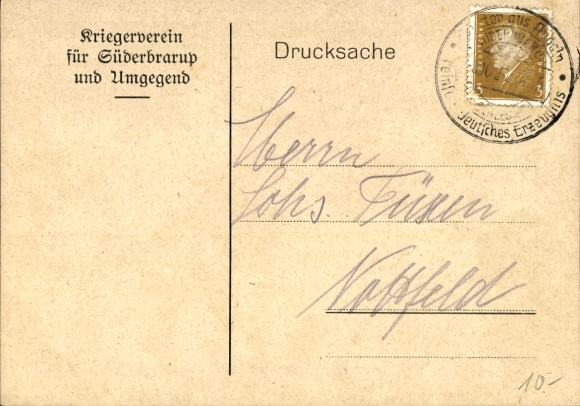 Kriegerverein
für Süderbrarup
und Umgegend
Drucksache
aus Angeln
deutsches Erzeugnis
3 3
Herrn
Johs. Tüxen
Nottfeld
10.-